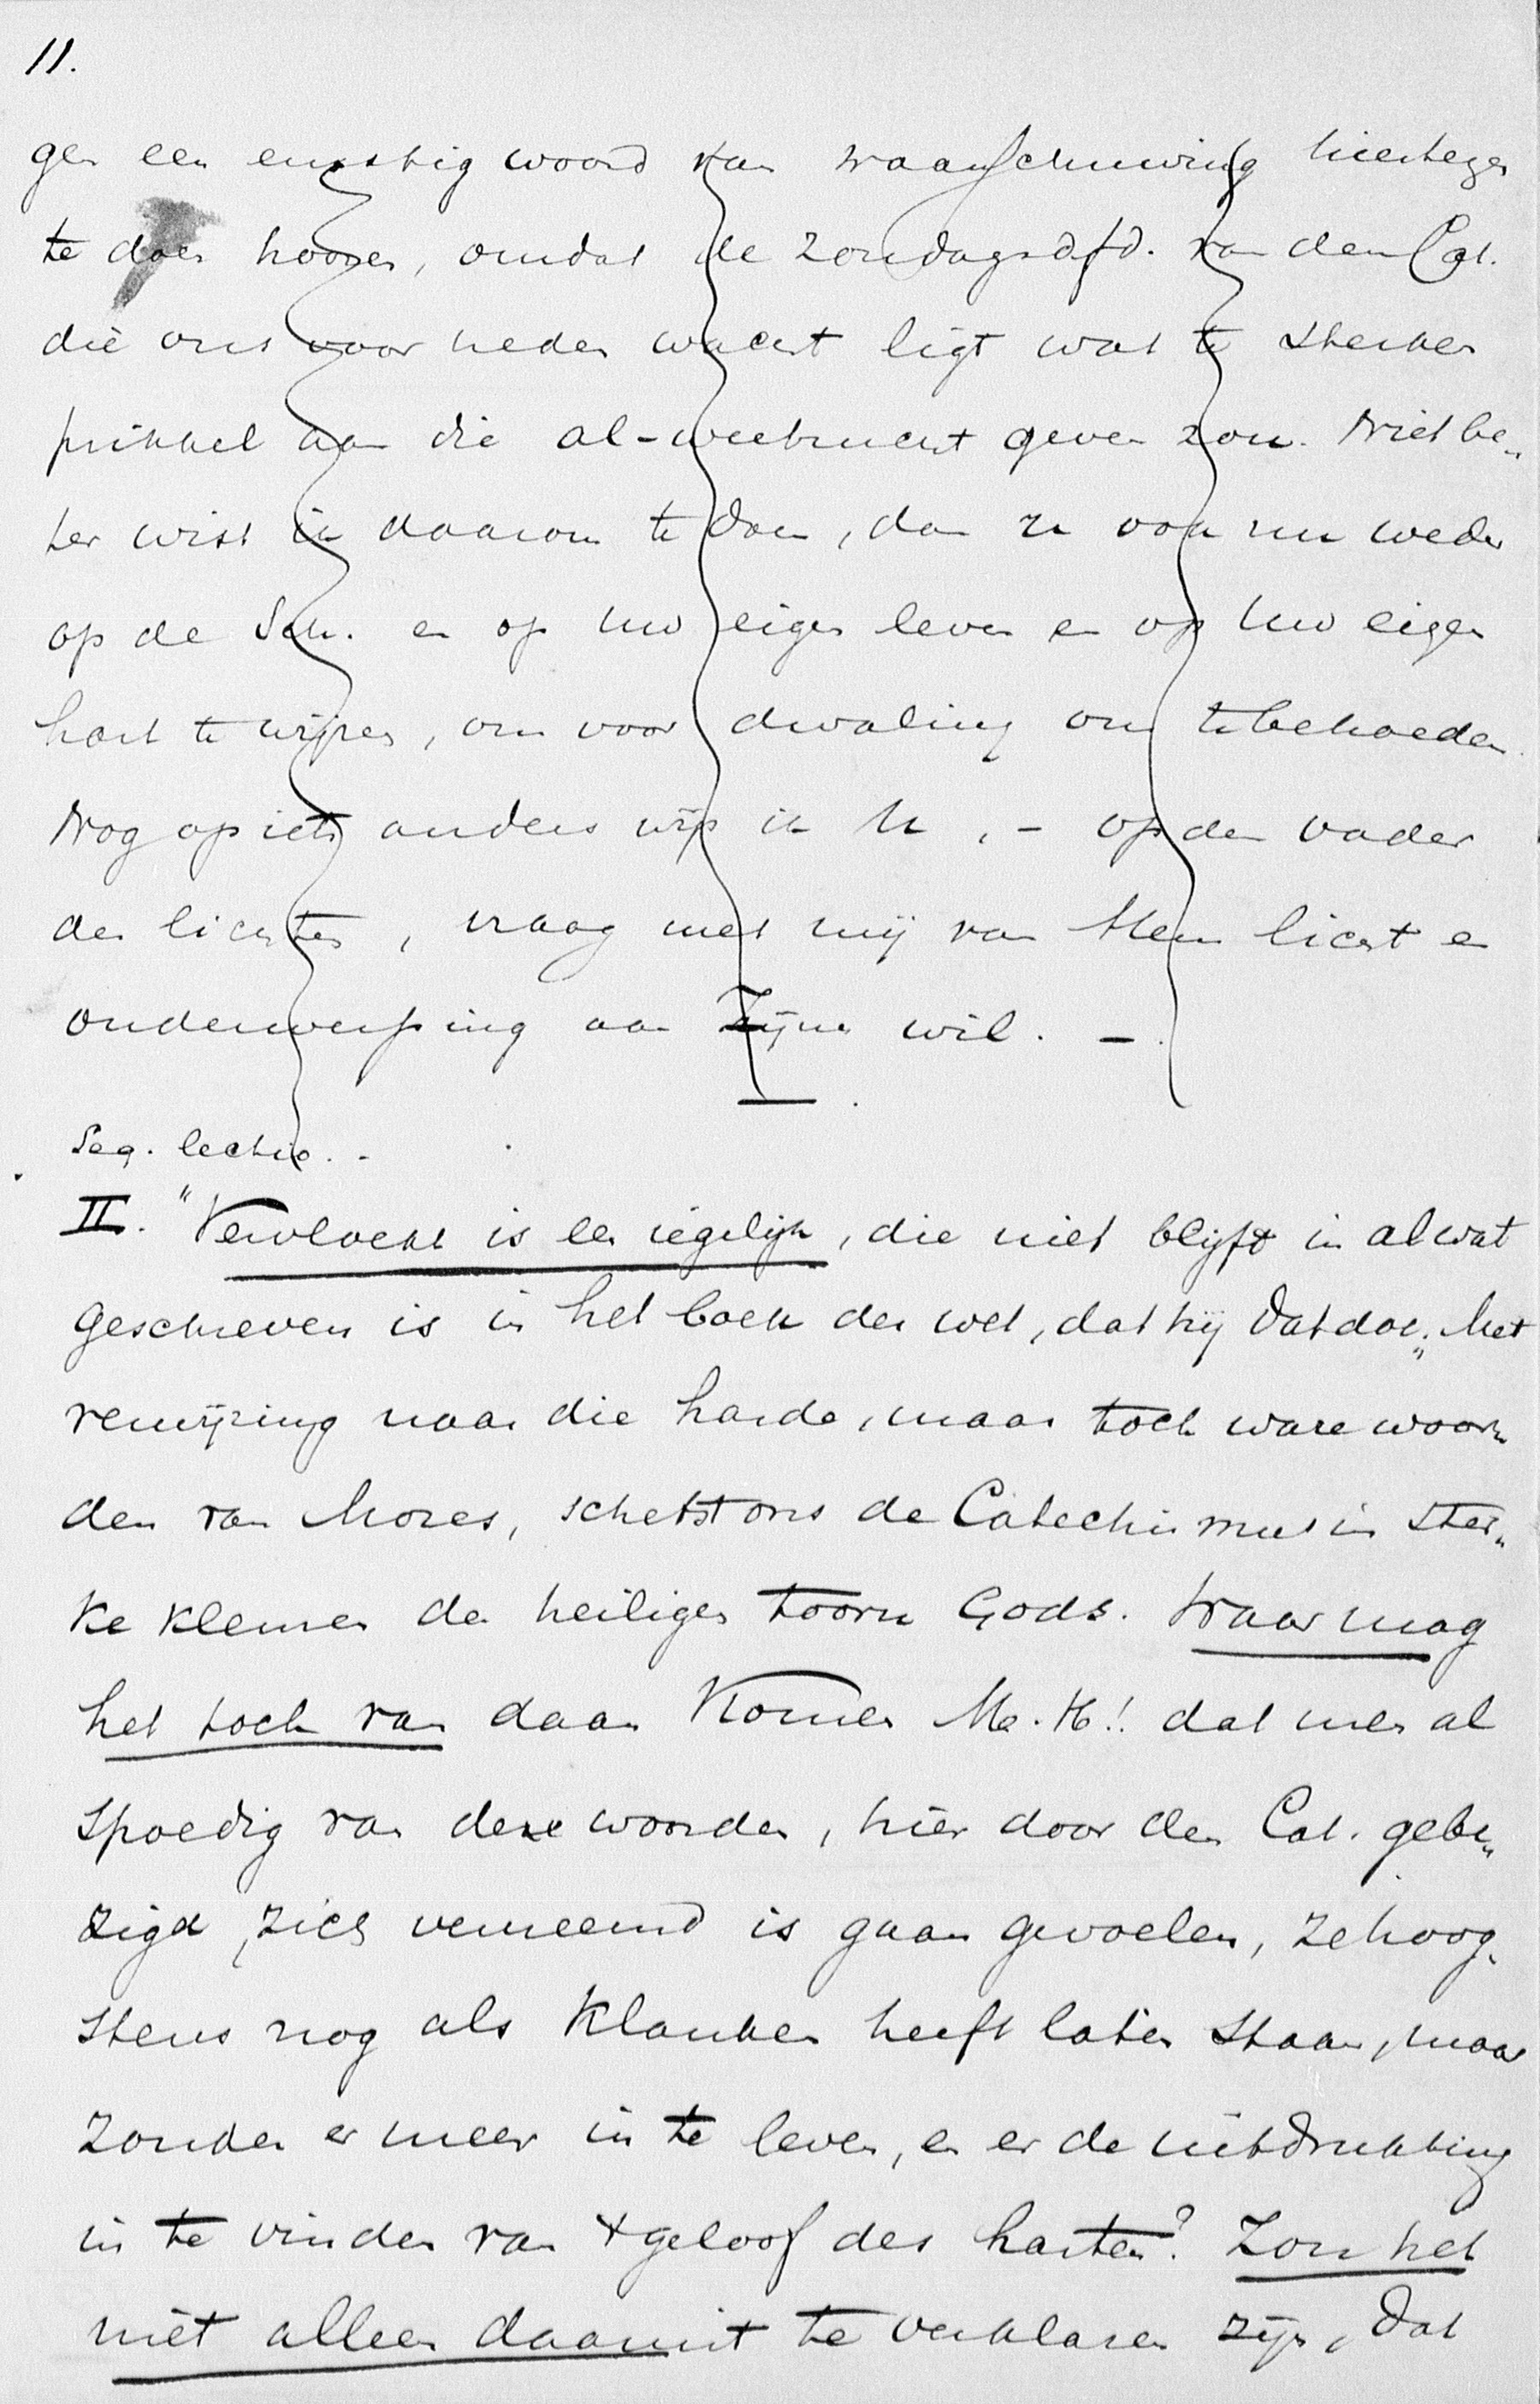 11.
gen een ernstig woord van waarschuwing hiertegen
te doen hooren, omdat de zondagsafd. van den Cat.
die ons voor heden wacht ligt wat te sterken
prikkel aan die al-weetzucht geven zou. Niet be„
ter wist ik daarom te doen, dan u ook nu weder
op de Sch. en op uw eigen leven en op uw eigen
hart te wijzen, om voor dwaling ons te behoeden.
Nog op iets anders wijs ik U, - op den vader
der lichten, vraag met mij van Hem licht en
onderwerping aan Zijnen wil. -
Seq. lectio. -
II. "Vervloekt is een iegelijk, die niet blijft in al wat
geschreven is in het boek der wet, dat hij dat doe„. Met
verwijzing naar die harde, maar toch ware woor„
den van Mozes, schetst ons de Catechismus in ster„
ke kleuren den heiligen toorn Gods. Waar mag
het toch van daan komen M. H.! dat men al
spoedig van deze woorden, hier door den Cat. gebe„
zigd, zich vervreemd is gaan gevoelen, ze hoog„
stens nog als klanken heeft laten staan, maar
zonder er meer in te leven, en er de uitdrukking
in te vinden van 't geloof des harten? Zou het
niet alleen daaruit te verklaren zijn, dat